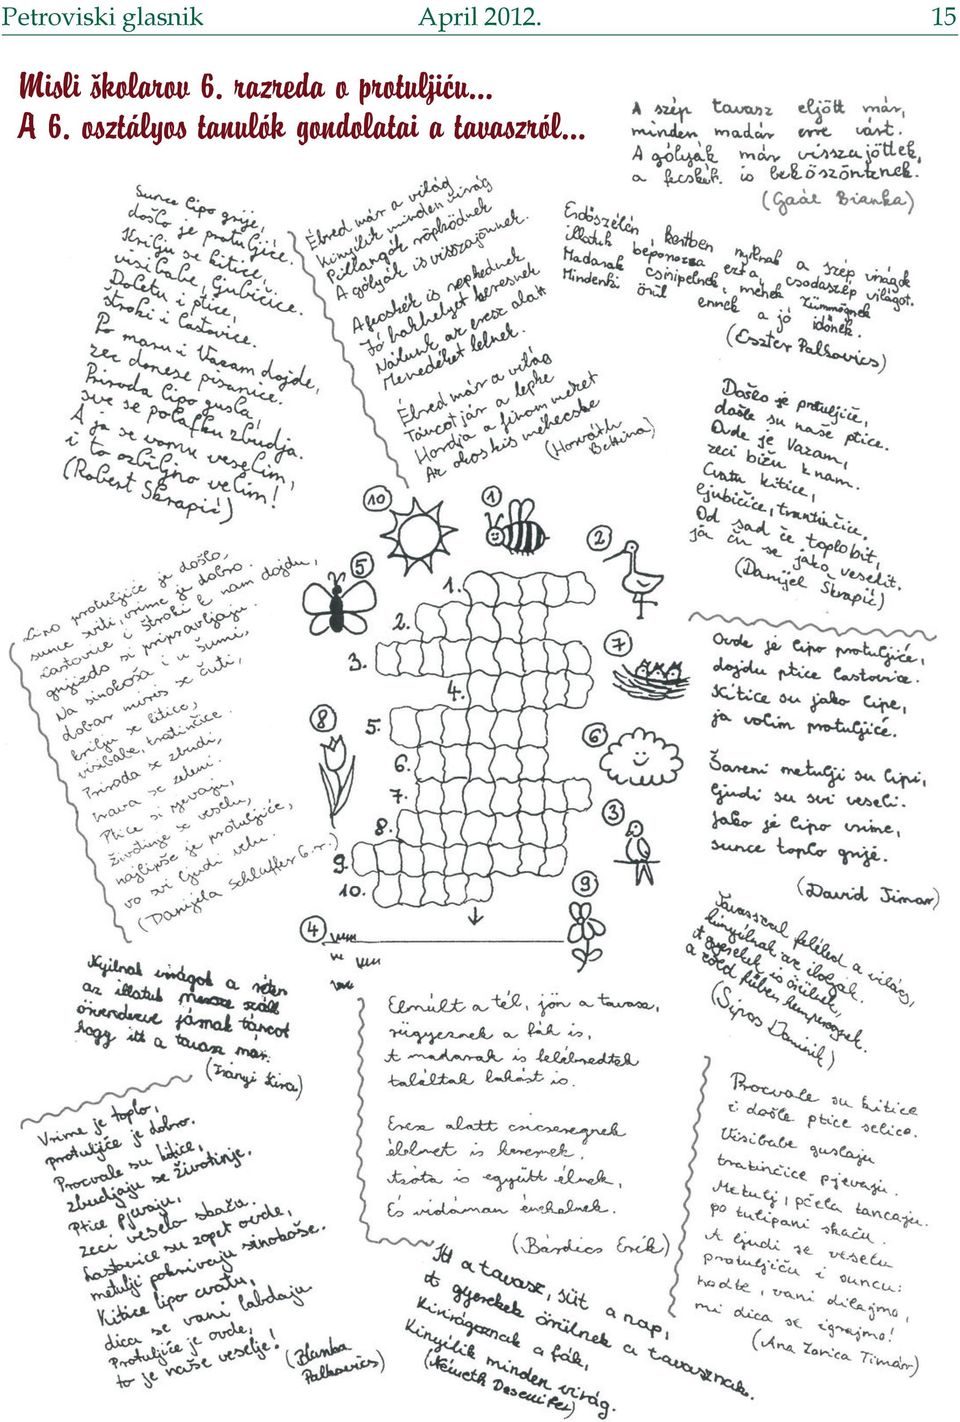 Petroviski glasnik April 2012. 15
Misli školarov 6. razreda o protuljiću...
A 6. osztályos tanulók gondolatai a tavaszról...
A szép tavasz eljött már,
minden madár erre várt.
A gólyák már visszajöttek,
a fecskék is beköszöntenek.
(Gaál Bianka)
Sunce lipo grije,
došlo je protuljiće.
Krilju se kitice,
visibabe, ljubičice.
Doletu i ptice,
štroki i lastovice.
Po maru i Vazam dojde,
zec donese pisanice.
Priroda lipo gusla,
sve se polafku zbudja.
A ja se vamu veselim,
i to ozbiljno velim!
(Robert Škrapić)
Ébred már a világ
Kinyílik minden virág
Pillangók röpködnek
A gólyák is visszajönnek.
A fecskék is repkednek
Jó lakhelyet keresnek
Nálunk az eresz alatt
Menedéket lelnek.
Ébred már a világ
Táncot jár a lepke
Hordja a finom mézet
Az okos kis méhecske
(Horváth Bettina)
Erdőszélén, kertben nyílnak a szép virágok
illatuk beporozza ezt a csodaszép világot.
Madarak csiripelnek, méhek zümmögnek
Mindenki örül ennek a jó időnek.
(Eszter Palkovics)
Došlo je protuljiće,
došle su naše ptice.
Ovde je Vazam,
zeci bižu k nam.
Cvatu kitice,
ljubičice, tratinčice.
Od sad će toplo bit,
ja ću se jako veselit.
(Danijel Škrapić)
Lipo protuljiće je došlo,
sunce sviti, vrime je dobro.
Lastovice i štroki k nam dojdu,
gnjizdo si pripravljaju.
Na sinokoša i u šumi,
dobar miris se čuti,
krilju se kitice,
visibabe, tratinčice.
Priroda se zbudi,
trava se zeleni.
Ptice si pjevaju,
životinje se veselu,
najlipše je protuljiće,
vo svi ljudi velu.
(Danijela Schlaffer 6.r.)
10
1
2
5
7
8
6
3
9
4
1.
2.
3.
4.
5.
6.
7.
8.
9.
10.
Ovde je lipo protuljiće,
dojdu ptice lastovice.
Kitice su jako lipe,
ja volim protuljiće.
Šareni metulji su lipi,
ljudi su svi veseli.
Jako je lipo vrime,
sunce toplo grije.
(David Timar)
Tavasszal feléled a világ,
kinyílnak az ibolyák.
A gyerekek is örülnek,
a zöld fűben hempergőznek.
(Sipos Dominik)
Nyílnak virágok a réten
az illatuk messze száll
örvendezve járnak táncot
hogy itt a tavasz már.
(Irányi Kira)
Elmúlt a tél, jön a tavasz,
rügyeznek a fák is,
A madarak is felébredtek
találtak lakást is.
Eresz alatt csicseregnek
élelmet is keresnek,
Azóta is együtt élnek,
És vidáman énekelnek.
(Bárdics Erik)
Vrime je toplo,
protuljiće je dobro.
Procvale su kitice,
zbudjaju se životinje.
Ptice pjevaju,
zeci veselo skaču.
Lastovice su zopet ovde,
metulji pokrivaju sinokoše.
Kitice lipo cvatu,
dica se vani labdaju
Protuljiće je ovde,
to je naše veselje!
(Blanka Palkovics)
Itt a tavasz, süt a nap,
A gyerekek örülnek a tavasznak.
Kivirágoznak a fák,
Kinyílik minden virág.
(Németh)
Procvale su kitice
i došle ptice selice.
Visibabe guslaju
tratinčice pjevaju.
Metulj i pčela tancaju.
po tulipani skaču.
A ljudi se veselu
protuljiću i suncu:
hodte, vani dilajmo,
mi dica se igrajmo!
(Ana Zorica Timár)